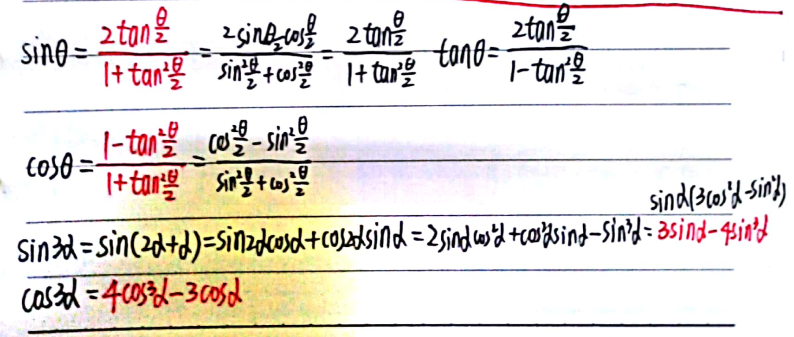 sinθ = 2tan θ/2 / 1+tan² θ/2 = 2sin θ/2 cos θ/2 / sin² θ/2 + cos² θ/2 = 2tan θ/2 / 1+tan² θ/2  tanθ = 2tan θ/2 / 1-tan² θ/2
cosθ = 1-tan² θ/2 / 1+tan² θ/2 = cos² θ/2 - sin² θ/2 / sin² θ/2 + cos² θ/2
sinα(3cos²α-sin²α)
sin3α = sin(2α+α) = sin2αcosα+cos2αsinα = 2sinαcos²α+cos²αsinα-sin³α = 3sinα-4sin³α
cos3α = 4cos³α-3cosα